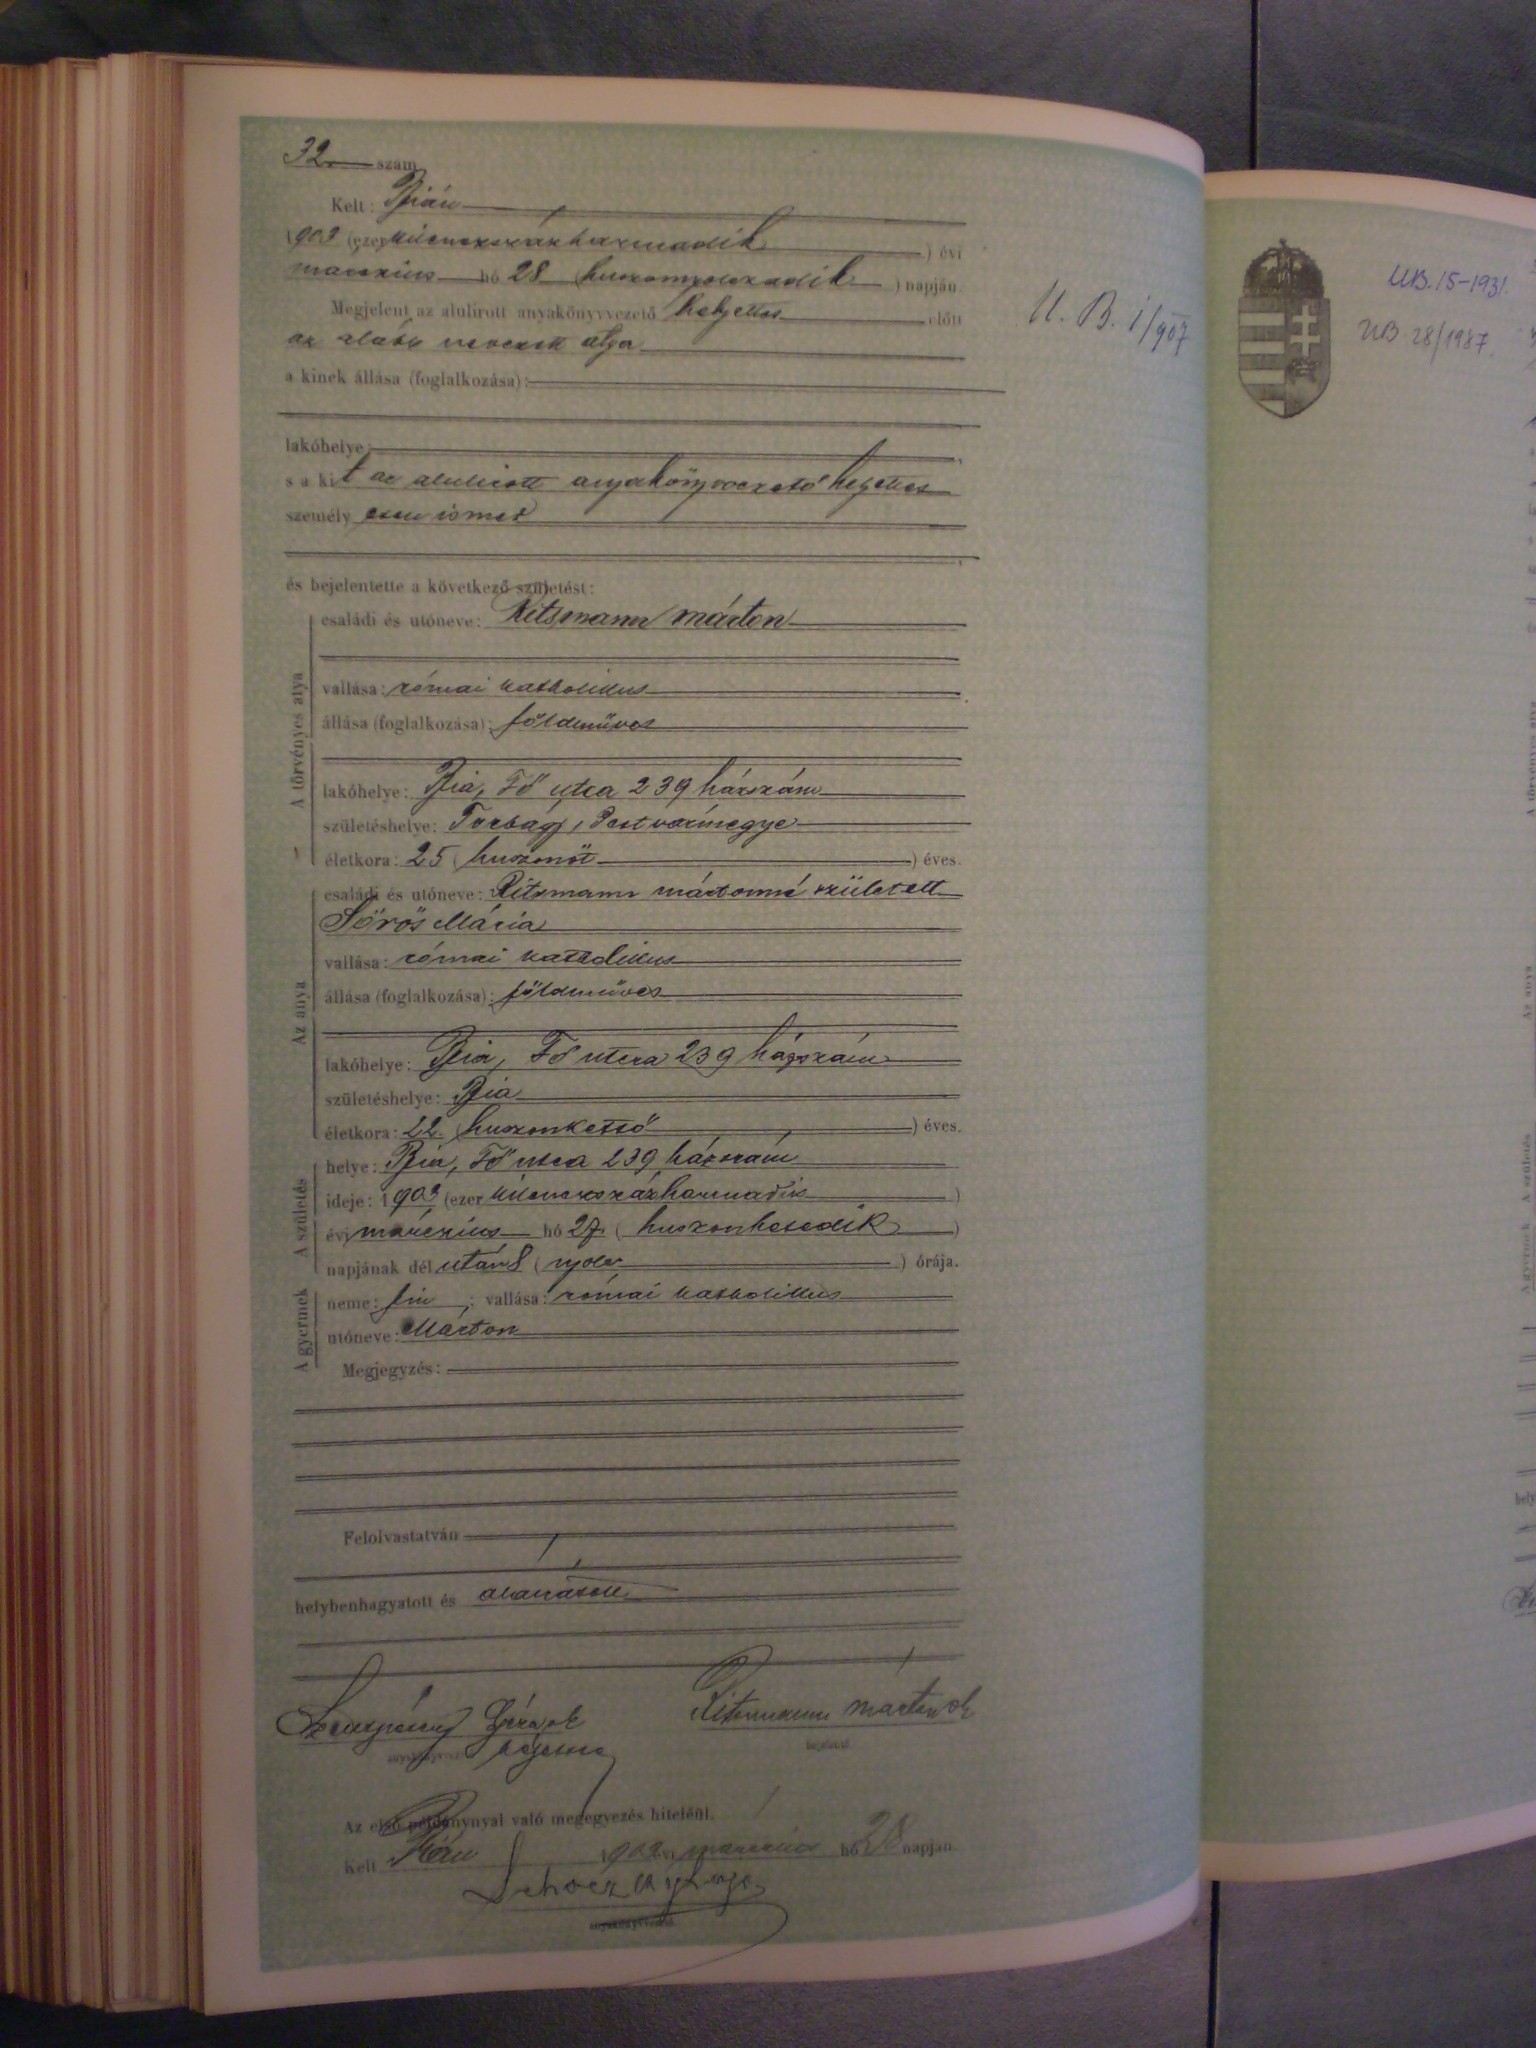 32 szám
Kelt: Bián
1903 (ezerkilenczszázharmadik) évi
márczius hó 28 (huszonnyolczadik) napján.
Megjelent az alulirott anyakönyvvezető helyettes előtt
az alább nevezett atya
a kinek állása (foglalkozása):
lakóhelye:
s a kit az alulirott anyakönyvvezető helyettes
személyesen ismer
és bejelentette a következő születést:
A törvényes atya
családi és utóneve: Ritsmann Márton
vallása: római katholikus
állása (foglalkozása): földműves
lakóhelye: Bia, Fő utca 239 házszám
születéshelye: Torbágy, Pest vármegye
életkora: 25 (huszonöt) éves.
Az anya
családi és utóneve: Ritsmann Mártonné született
Sörös Mária
vallása: római katholikus
állása (foglalkozása): földműves
lakóhelye: Bia, Fő utcza 239 házszám
születéshelye: Bia
életkora: 22 (huszonkettő) éves.
A születés
helye: Bia, Fő utca 239 házszám
ideje: 1903 (ezerkilenczszázharmadik)
évi márczius hó 27 (huszonhetedik)
napjának dél után 8 (nyolcz) órája.
A gyermek
neme: fiu; vallása: római katholikus
utóneve: Márton
Megjegyzés:
Felolvastatván
helybenhagyatott és aláiratott
Ritsmann Márton
helyettes
bejelentő.
Az első példánynyal való megegyezés hiteléül.
Kelt Bián 1903 évi márczius hó 28 napján.
anyakönyvvezető.
U. B. 1/907
UB. 15-1931.
UB 28/1987.